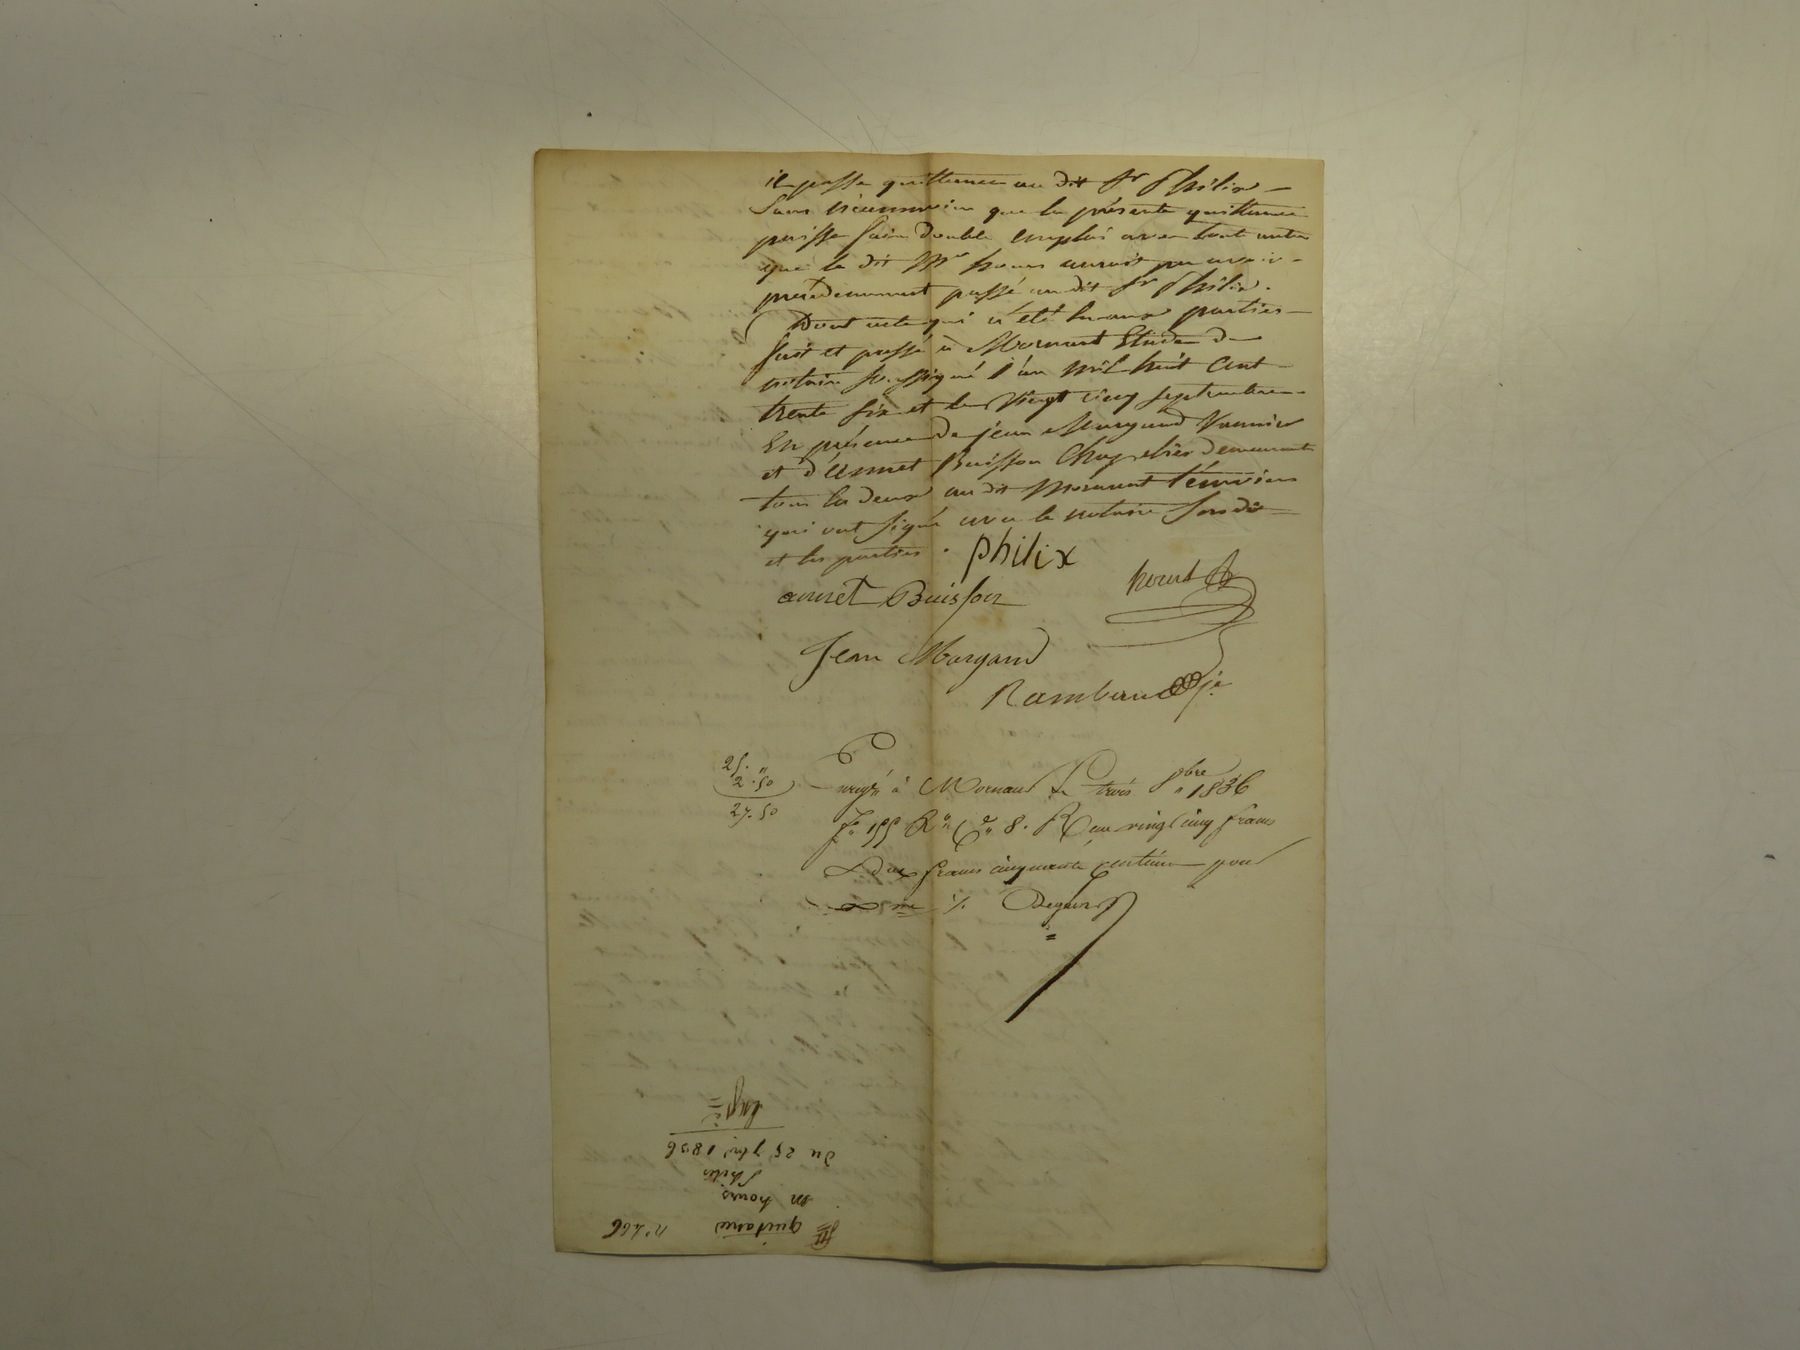 il passe quittance au dit Sr Philix
Sans néanmoins que la présente quittance
puisse faire double emploi avec tout autre
que le dit Mr hours auroit pu avoir
precedemment passé au dit Sr Philix.
Dont acte qui a été lu aux parties
fait et passé à Mornant Etude du
notaire soussigné l'an mil huit Cent
trente six et le Vingt cinq septembre
En présence de jean Margand Vannier
et d'annet Buisson Chapelier demeurant
tous les deux au dit Mornant témoins
qui ont signé avec le notaire susdit
et les parties.
philix
hours
annet Buisson
Jean Margand
Rambaud
25. "
2.50
27.50
Enregé à Mornant Le trois 8bre 1836
fo 155 Ro Ce 8. Reçu vingt cinq francs
& deux francs cinquante centimes pour
Xme
n° 466
quitance
m hours
Philix
du 25 7bre 1836